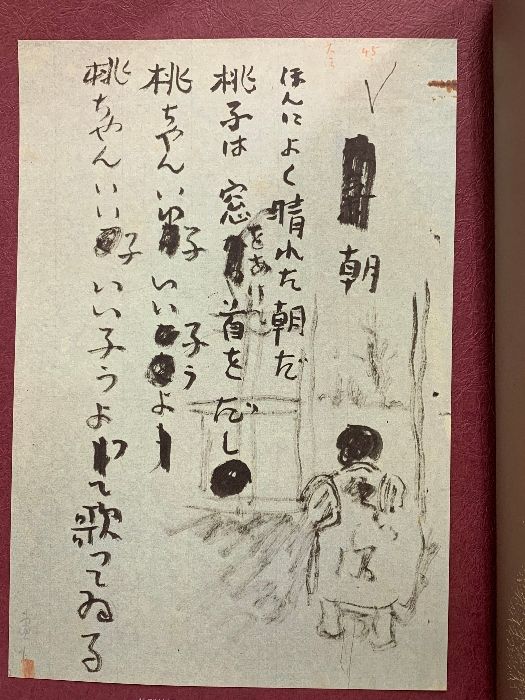 45
朝
ほんによく晴れた朝だ
桃子は窓をあけて首をだし
桃ちやんいい子 いい子うよ
桃ちやんいい子 いい子うよ
て歌つてゐる